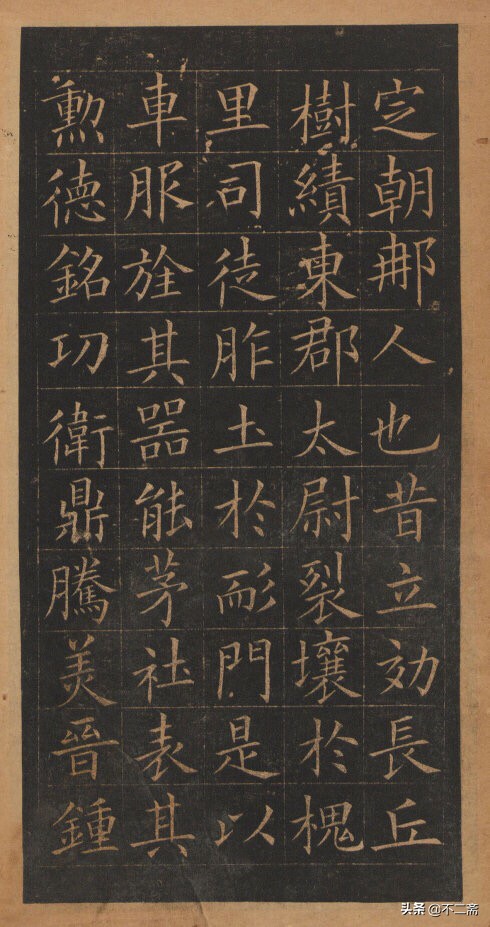 㝎朝䣝人也昔立効長丘
樹績東郡太尉裂壤於槐
里司徒胙土於耏門是以
車服旌其器能茅社表其
勲徳銘功衛鼎騰美晉鍾
头条@不二斋